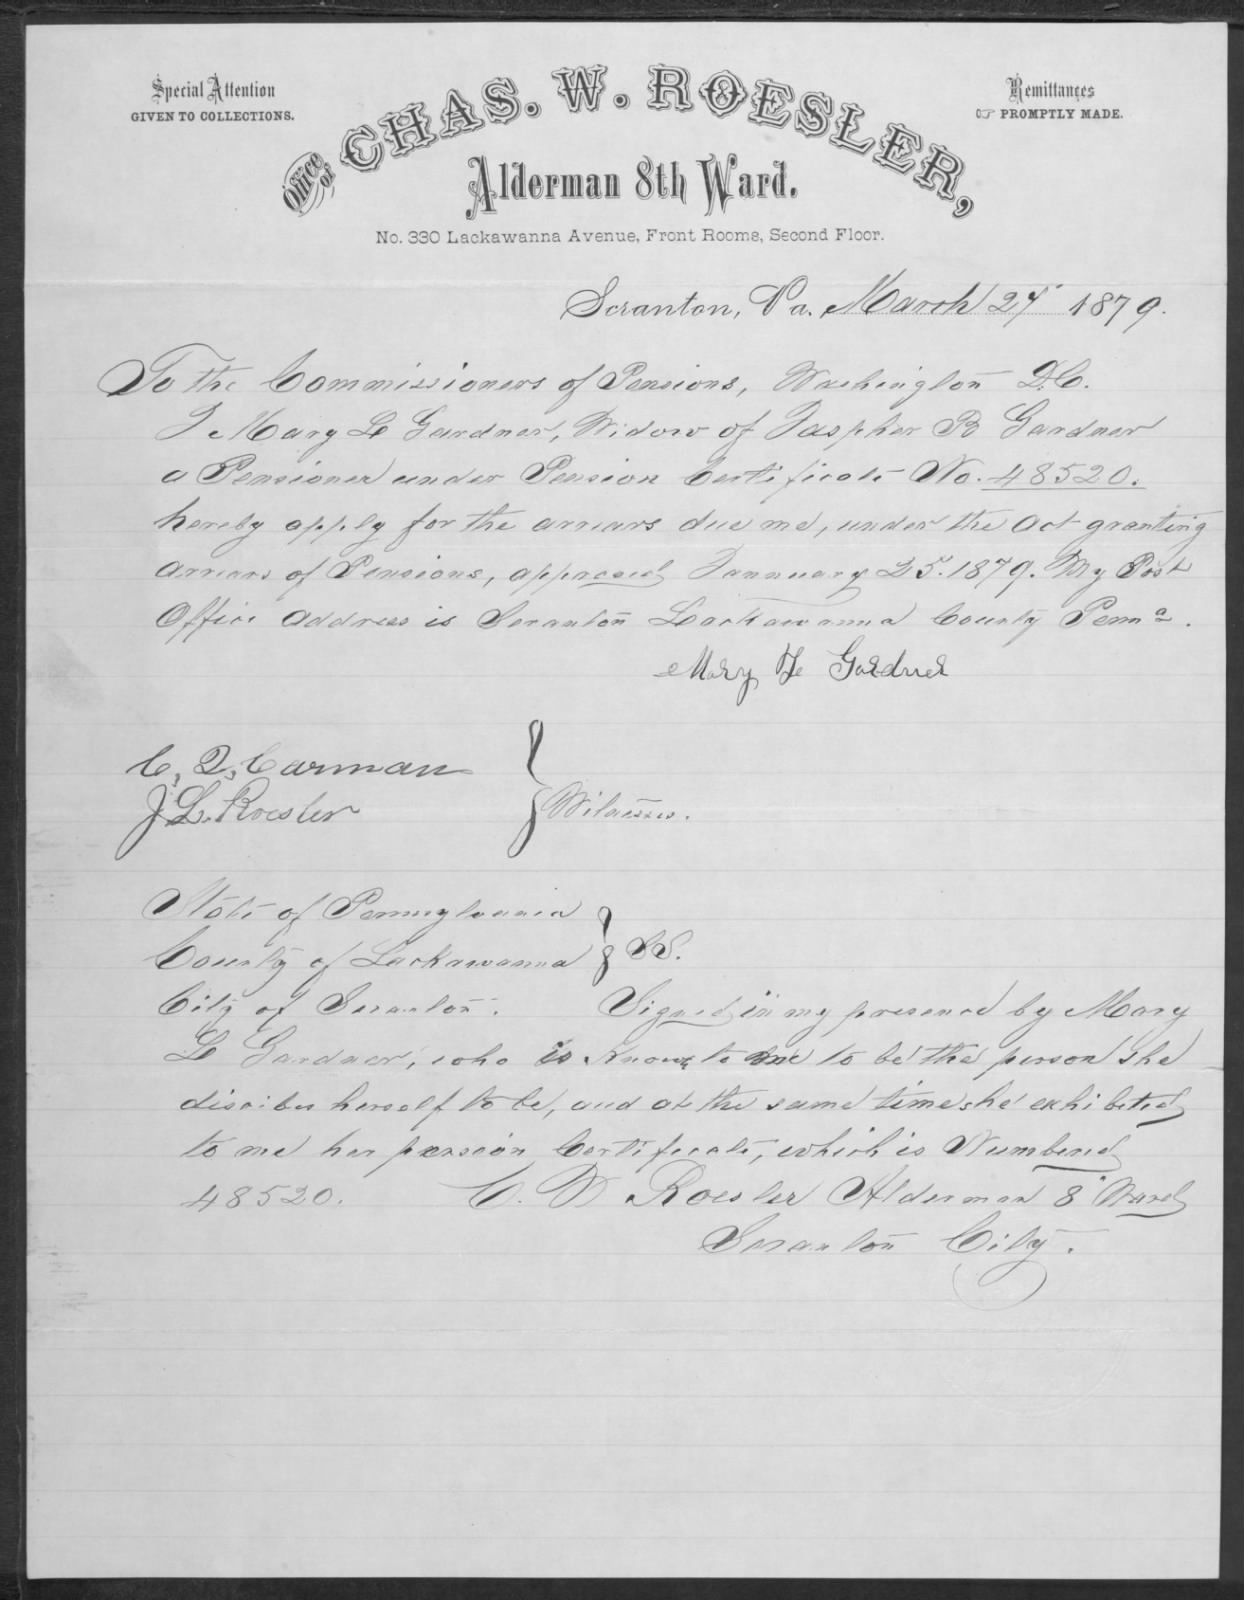 Special Attention
GIVEN TO COLLECTIONS.
Remittances
PROMPTLY MADE.
Office of
CHAS. W. ROESLER,
Alderman 8th Ward.
No. 330 Lackawanna Avenue, Front Rooms, Second Floor.
Scranton, Pa. March 24" 1879.
To the Commissioners of Pensions, Washington D.C.
I Mary L Gardner, Widow of Jaspher R Gardner
a Pensioner under Pension Certificate No. 48520.
hereby apply for the arriars due me, under the Act granting
Arriars of Pensions, approved Jannuary 25. 1879. My Post
Office address is Scranton Lackawanna County Penna.
Mary L Gardner
C. D. Carman
J. L. Roesler
Witnesses.
State of Pennsylvania
County of Lackawanna
SS.
City of Scranton. Signed in my presence by Mary
L Gardner, who is known to me to be the person she
discribes herself to be, and at the same time she exhibeted
to me her pension Certificate, which is Numbered
48520. C. W Roesler Alderman 8" Ward
Scranton City.